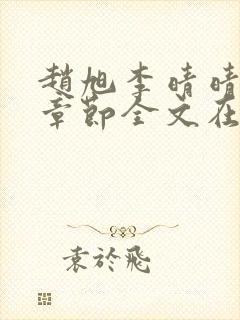 趙旭李晴晴
章節全文在
袁於飛